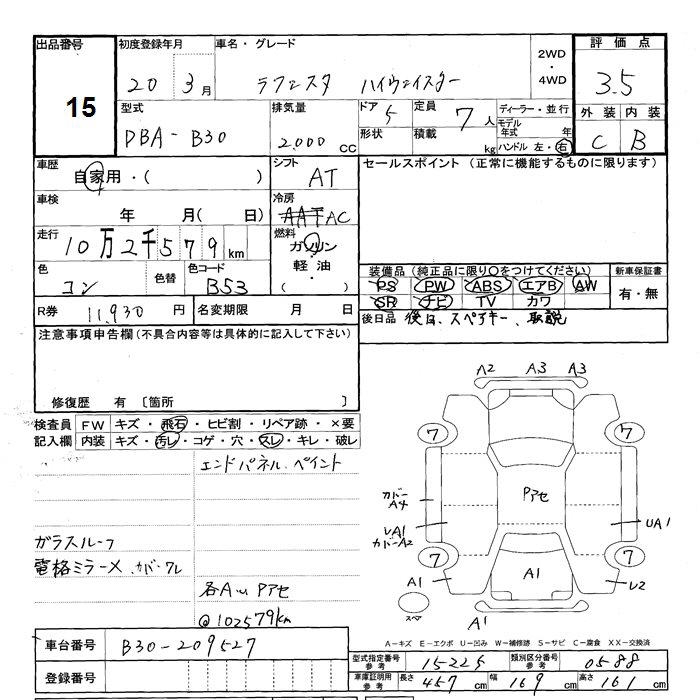 出品番号
15
初度登録年月
20 3月
車名・グレード
ラフェスタ ハイウェイスター
2WD
・
4WD
評価点
3.5
型式
DBA-B30
排気量
2000 cc
ドア 5
形状
定員 7人
積載 kg
ディーラー・並行
モデル年式 年
ハンドル 左・右
外装 内装
C B
車歴
自家用・( )
シフト
AT
車検
年 月( 日)
冷房
AC
走行
10万2千579km
燃料
ガソリン
軽油・
( )
色
コン
色替
色コード
B53
R券 11,930円
名変期限 月 日
セールスポイント (正常に機能するものに限ります)
装備品 (純正品に限り○をつけてください)
PS PW ABS エアB AW
SR ナビ TV カワ
新車保証書
有・無
後日品 後日、スペアキー、取説
注意事項申告欄 (不具合内容等は具体的に記入して下さい)
修復歴 有 〔箇所 〕
検査員記入欄
FW キズ・飛石・ヒビ割・リペア跡・×要
内装 キズ・汚レ・コゲ・穴・スレ・キレ・破レ
エンドパネル、ペイント
ガラスルーフ
電格ミラーメ、カバーワレ
各A、U Pアセ
@102579km
A2 A3 A3
7 7
Pアセ
カバーA4
UA1
カバーA2
UA1
7 7
A1 A1 U2
スペア
A1
A-キズ E-エクボ U-凹み W-補修跡 S-サビ C-腐食 XX-交換済
車台番号 B30-209527
登録番号
型式指定番号 参考 15225
類別区分番号 参考 0588
車庫証明用 参考 長さ 457cm 幅 169cm 高さ 161cm